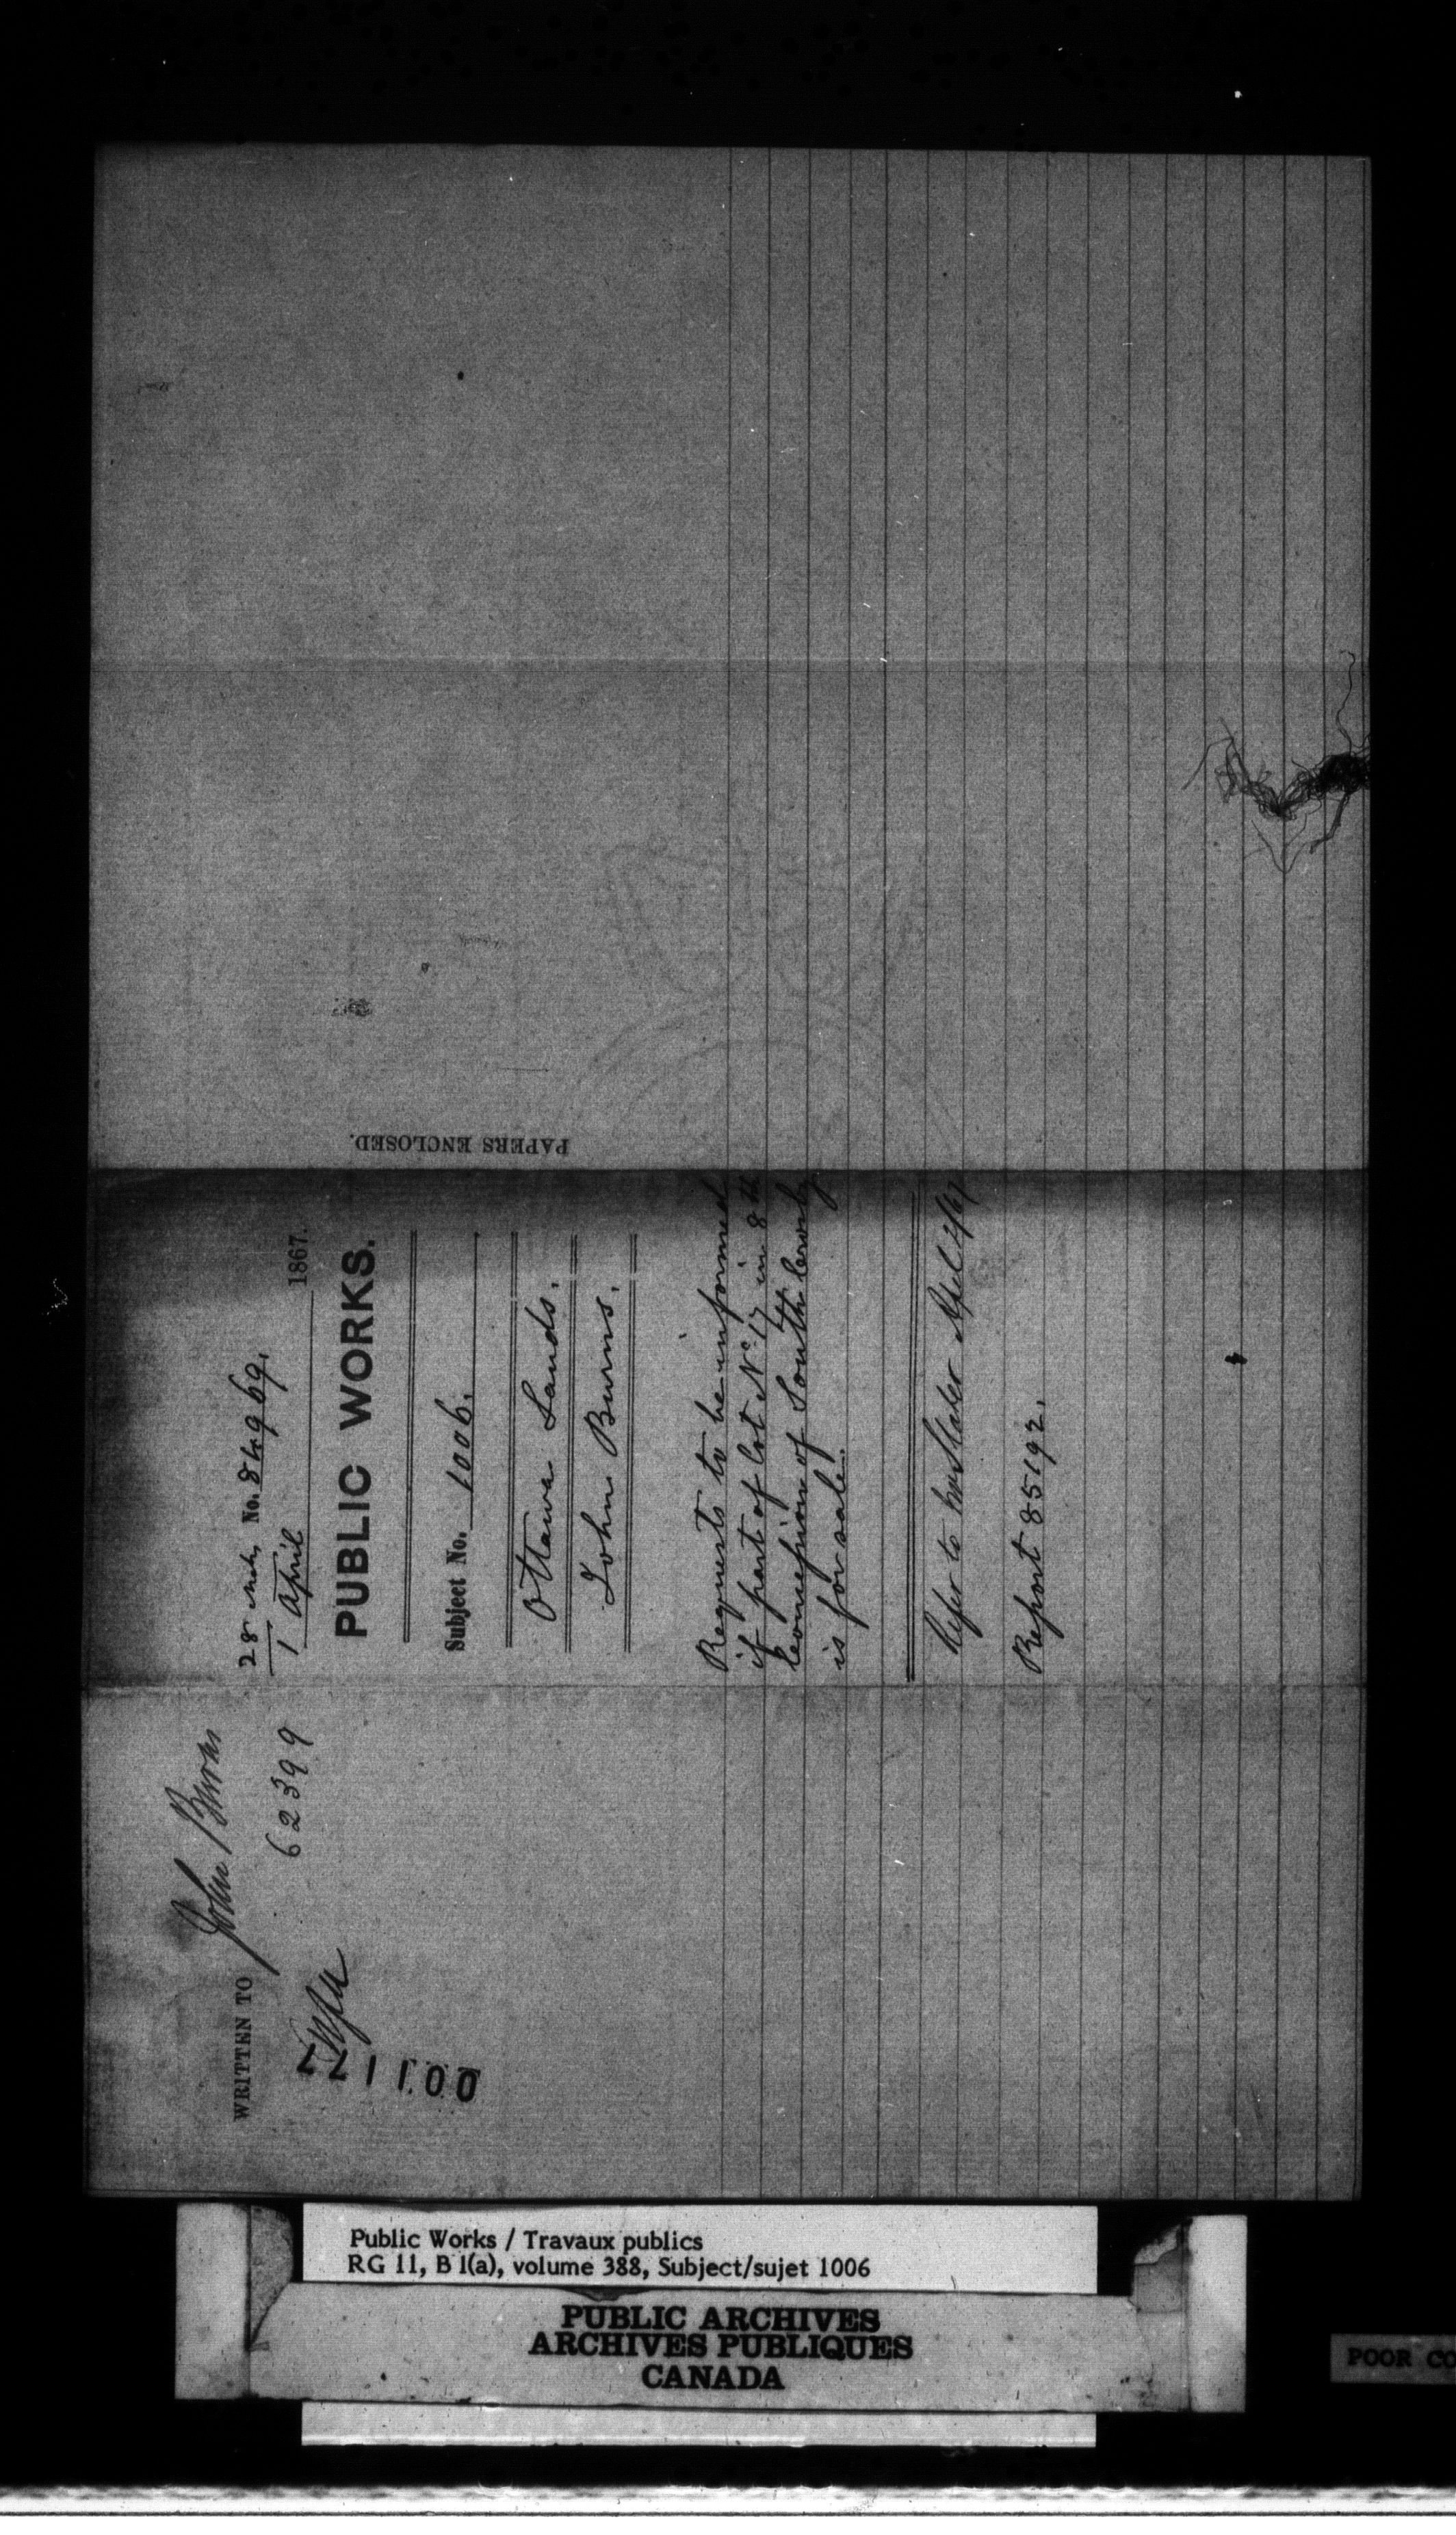 28 Mch, No. 84969.
1 April 1867.
PUBLIC WORKS.
Subject No. 1006.
Ottawa Lands.
John Burns.
Requests to be informed
if part of Lot No. 17 in 8th
Concession of South Crosby
is for sale.
Refer to Mr Slater April 2/67
Report 85192.
PAPERS ENCLOSED.
WRITTEN TO John Burns
62399
001177
Public Works / Travaux publics
RG 11, B 1(a), volume 388, Subject/sujet 1006
PUBLIC ARCHIVES
ARCHIVES PUBLIQUES
CANADA
POOR CO